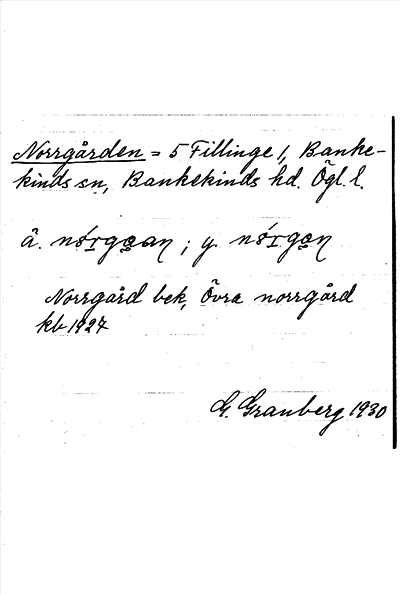 Norrgården = 5 Fillinge 1, Banke-
kinds sn, Bankekinds hd. Ögl. l.
â. ; y.
Norrgård bek, Övra norrgård
kb 1927
G. Granberg 1930